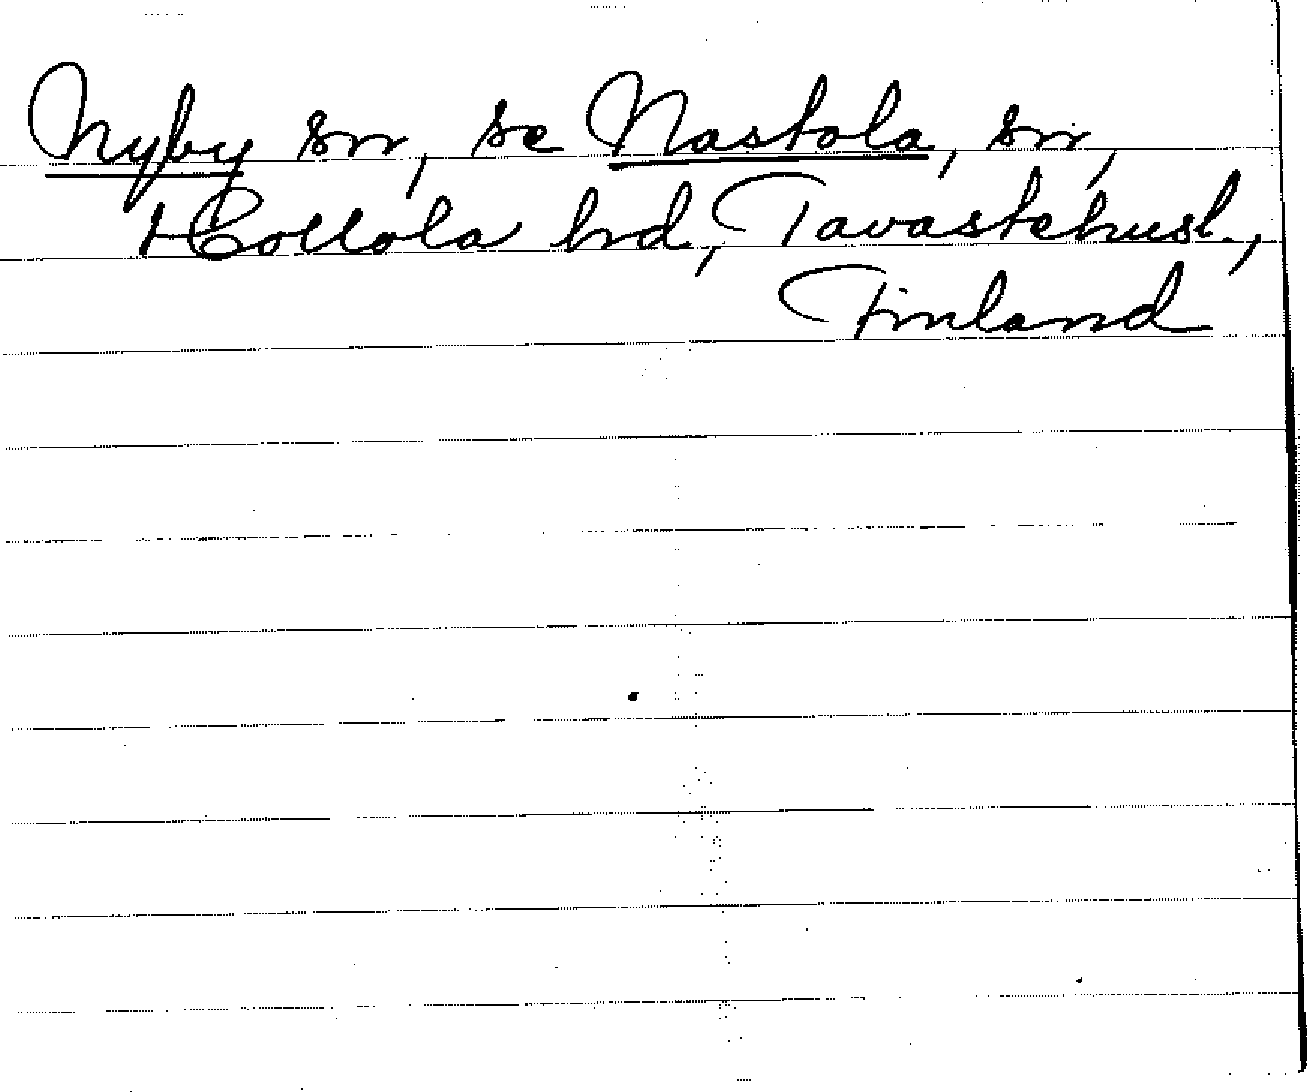 Nyby sn, se Nastola, sn,
Hollola hd, Tavastehusl.,
Finland